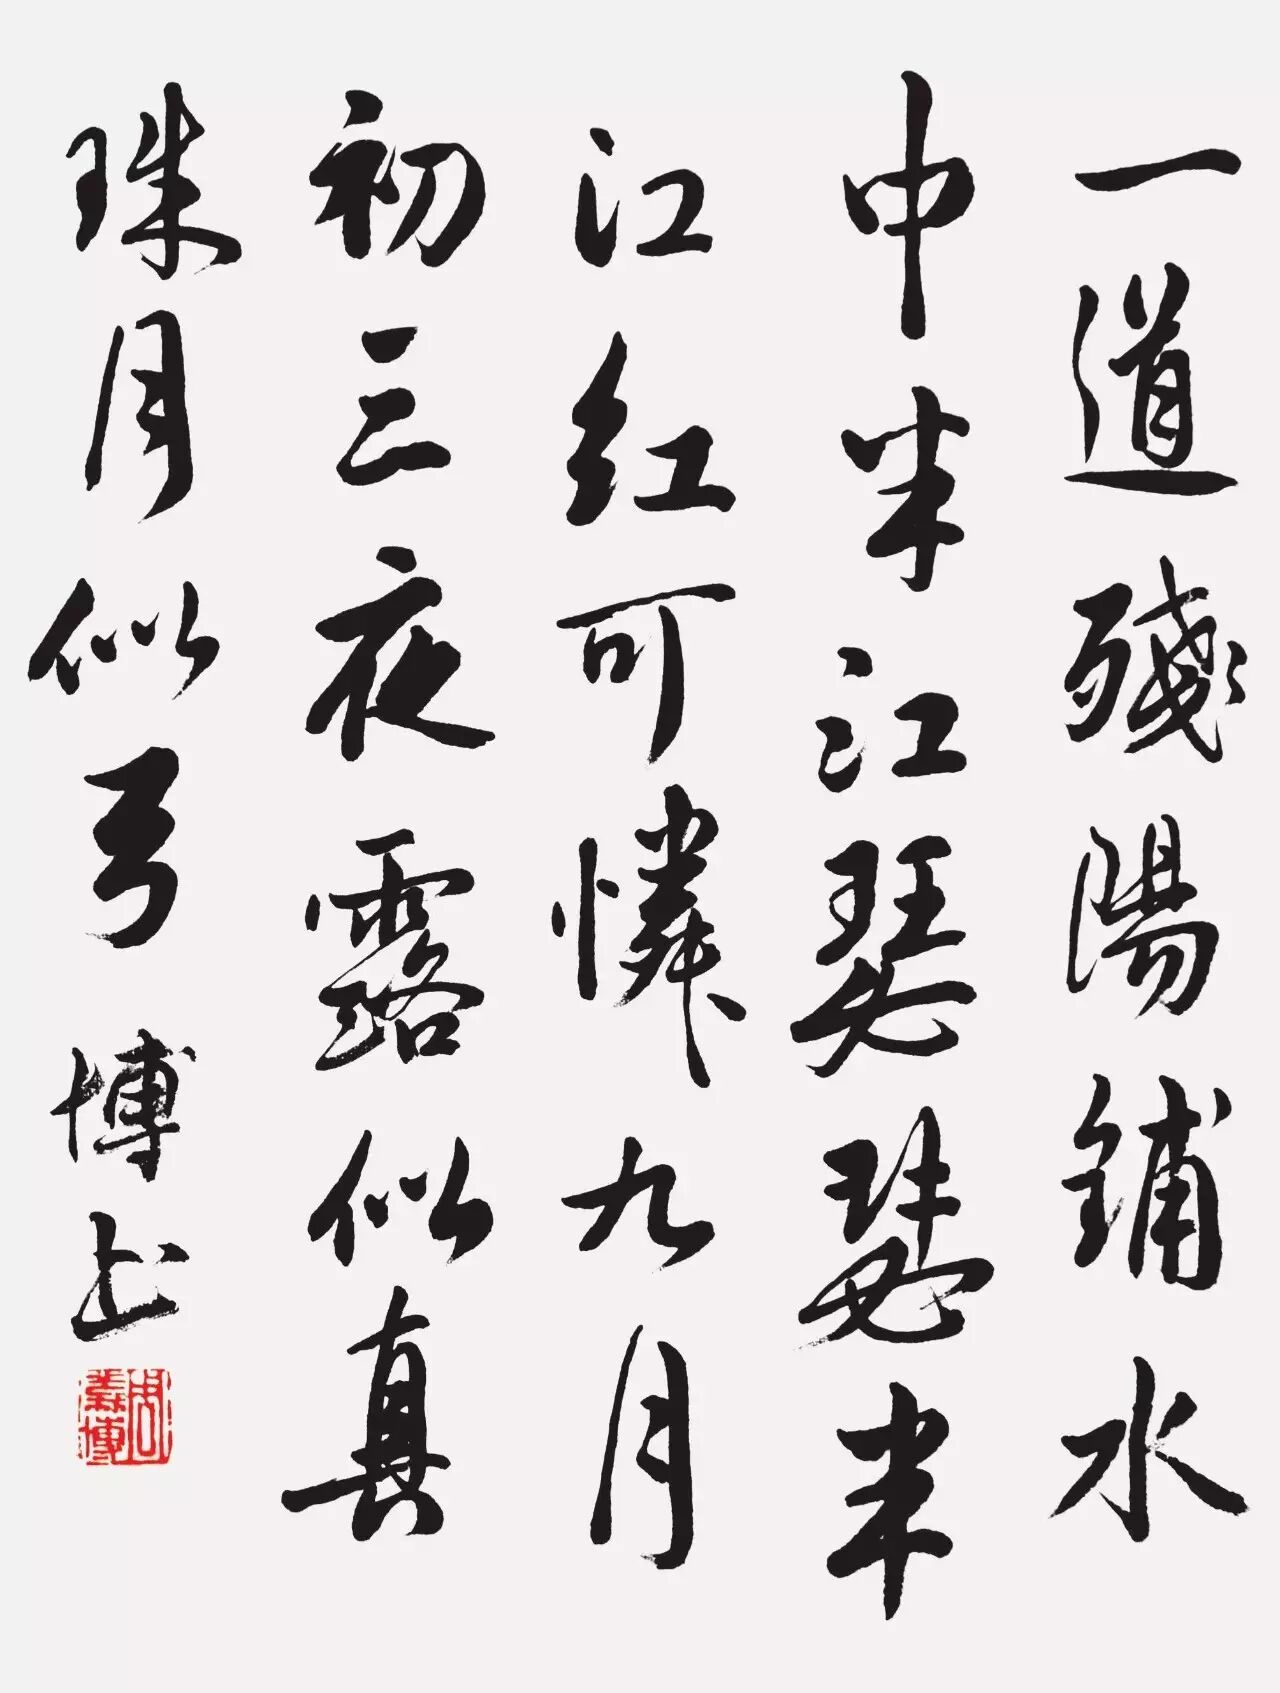 一道殘陽鋪水
中半江瑟瑟半
江红可憐九月
初三夜露似真
珠月似弓 博